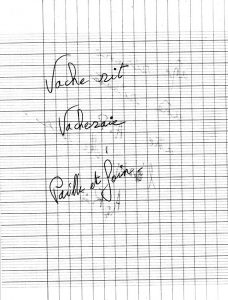 Vache rit
Vacheraie
Paille et foin